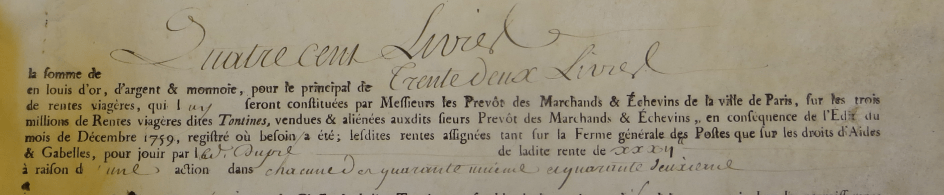 Quatre cent Livres
la somme de
en louis d'or, d'argent & monnoie, pour le principal de Trente deux Livres
de rentes viagères, qui luy seront constituées par Messieurs les Prevôt des Marchands & Échevins de la ville de Paris, sur les trois
millions de Rentes viagères dites Tontines, vendues & aliénées auxdits sieurs Prevôt des Marchands & Échevins, en conséquence de l'Edit du
mois de Décembre 1759, registré où besoin a été; lesdites rentes assignées tant sur la Ferme générale des Postes que sur les droits d'Aides
& Gabelles, pour jouir par led. Dupré de ladite rente de xxxij
à raison d'une action dans chacune des quarante unieme et quarante deuxieme